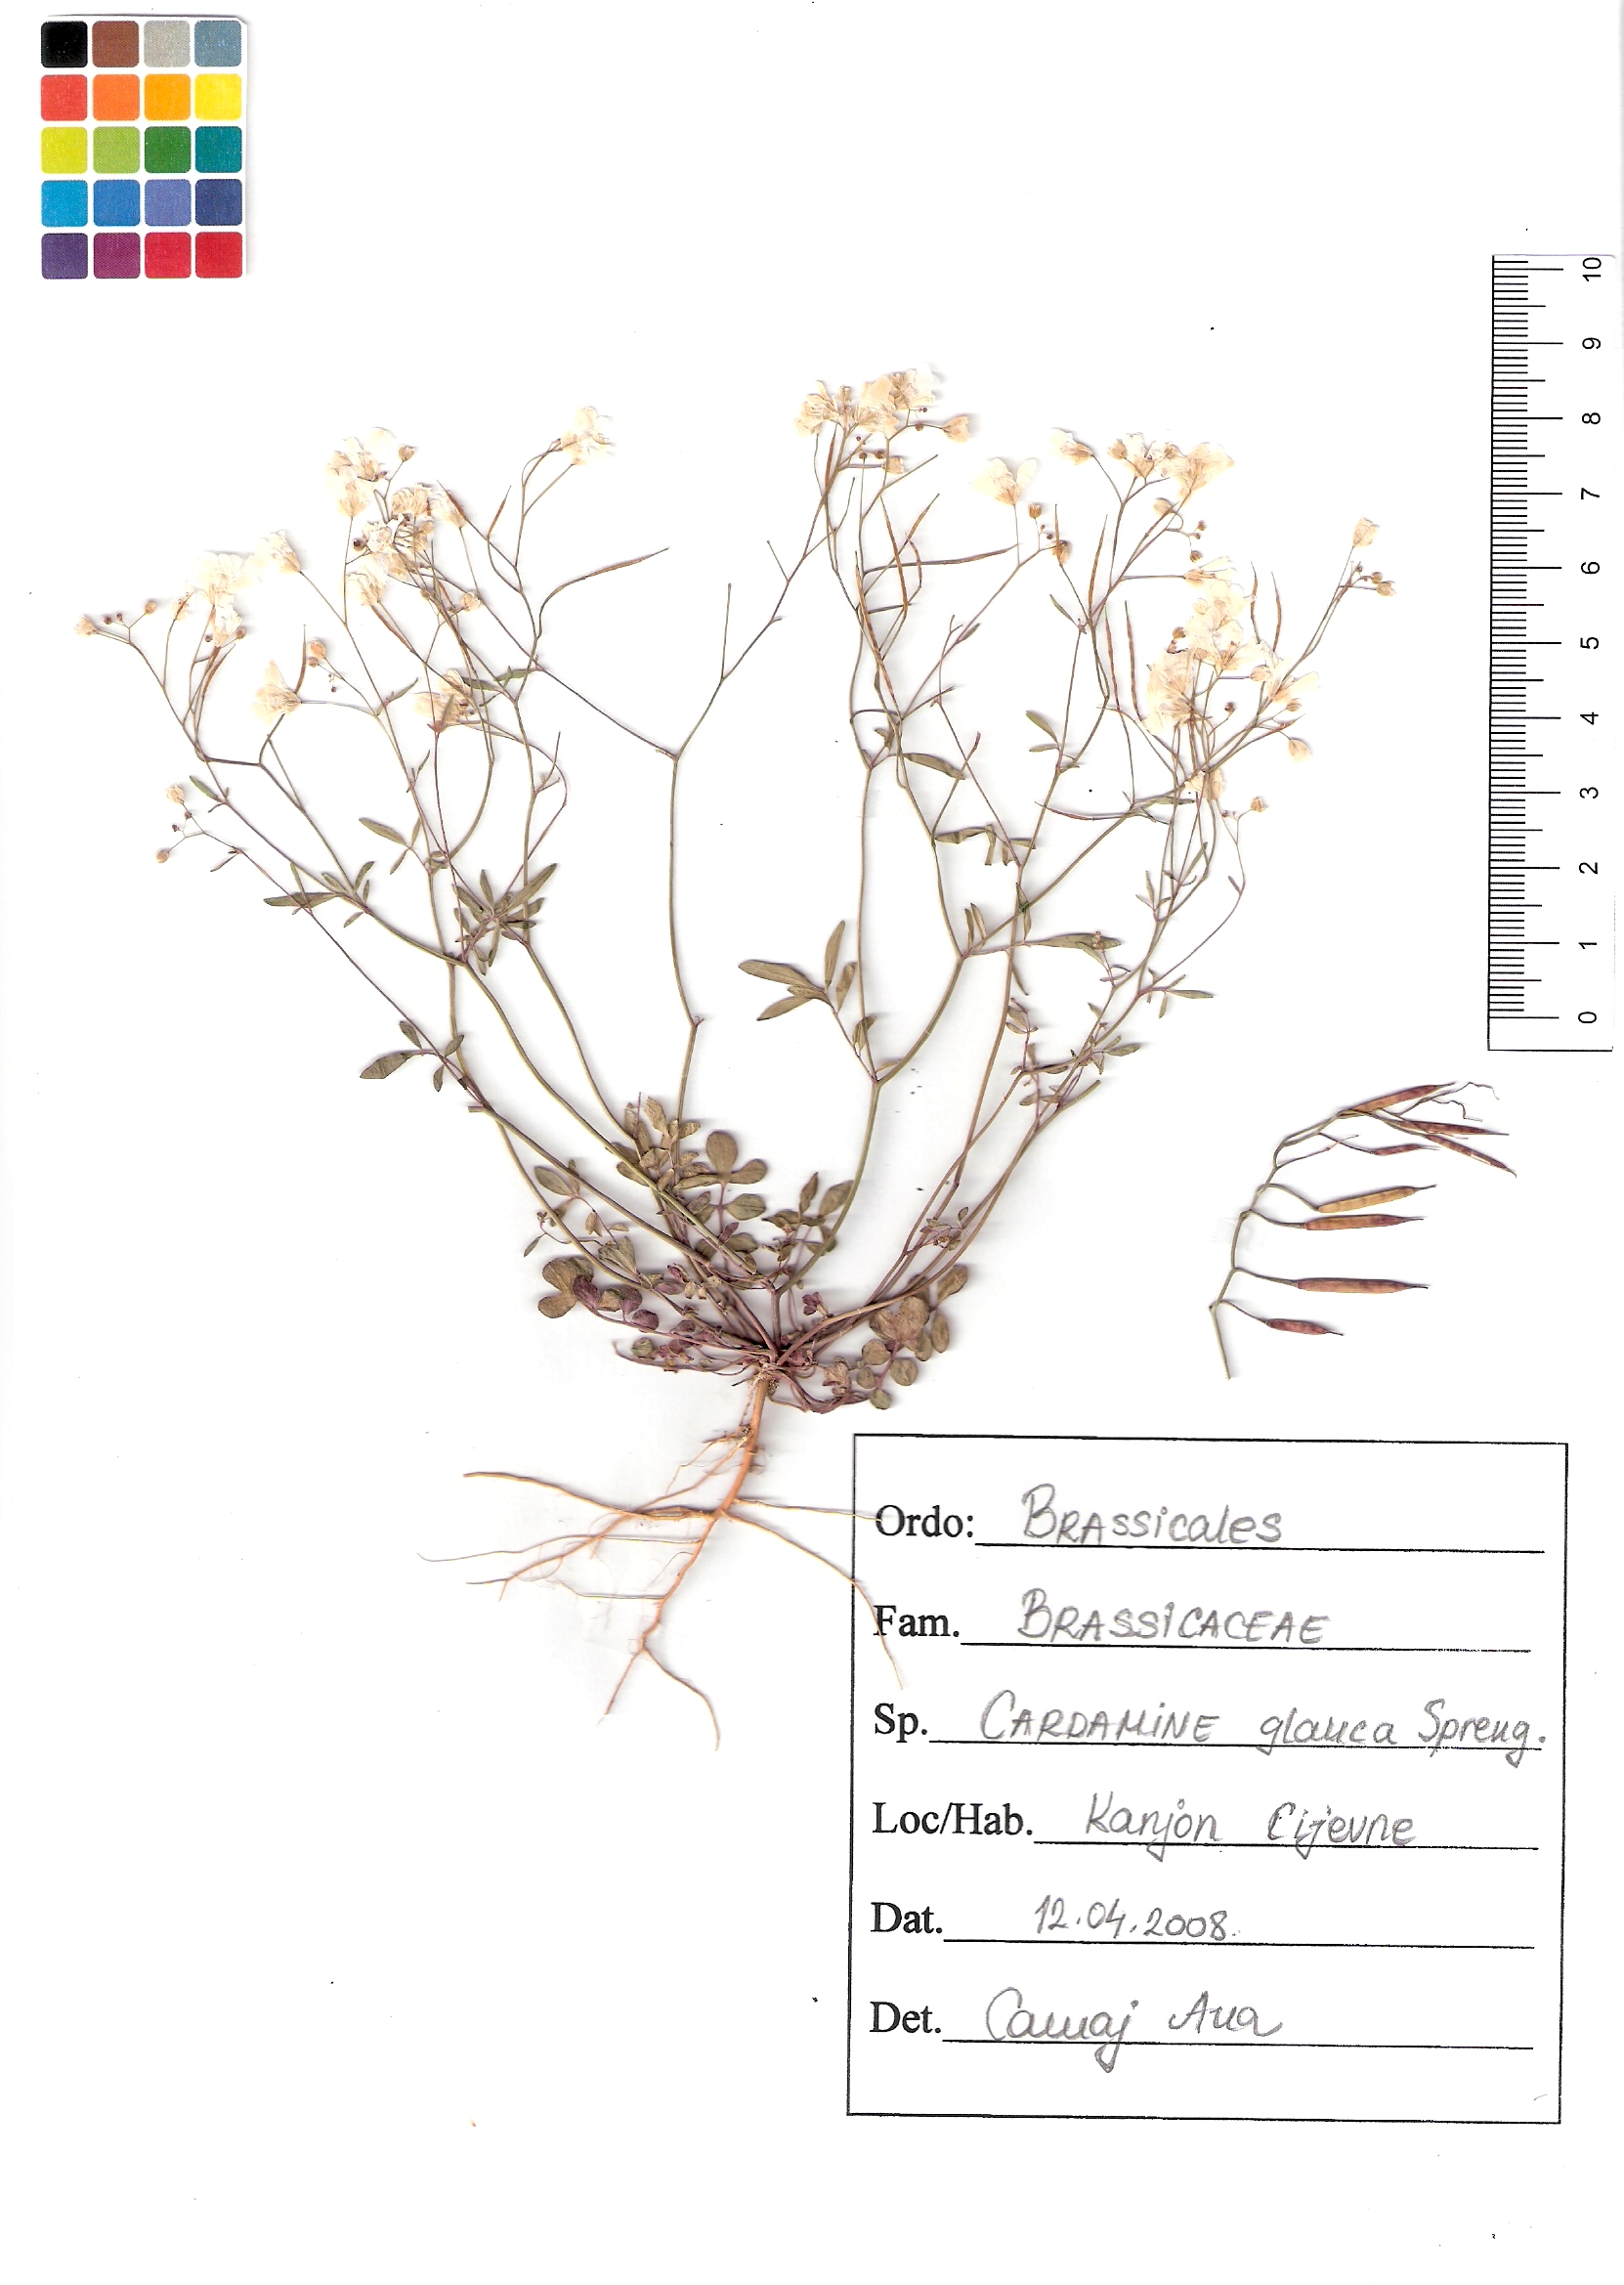 10
9
8
7
6
5
4
3
2
1
0
Ordo: BRASSICALES
Fam. BRASSICACEAE
Sp. CARDAMINE glauca Spreng.
Loc/Hab. Kanjon Cijevne
Dat. 12.04.2008.
Det. Camaj Ana